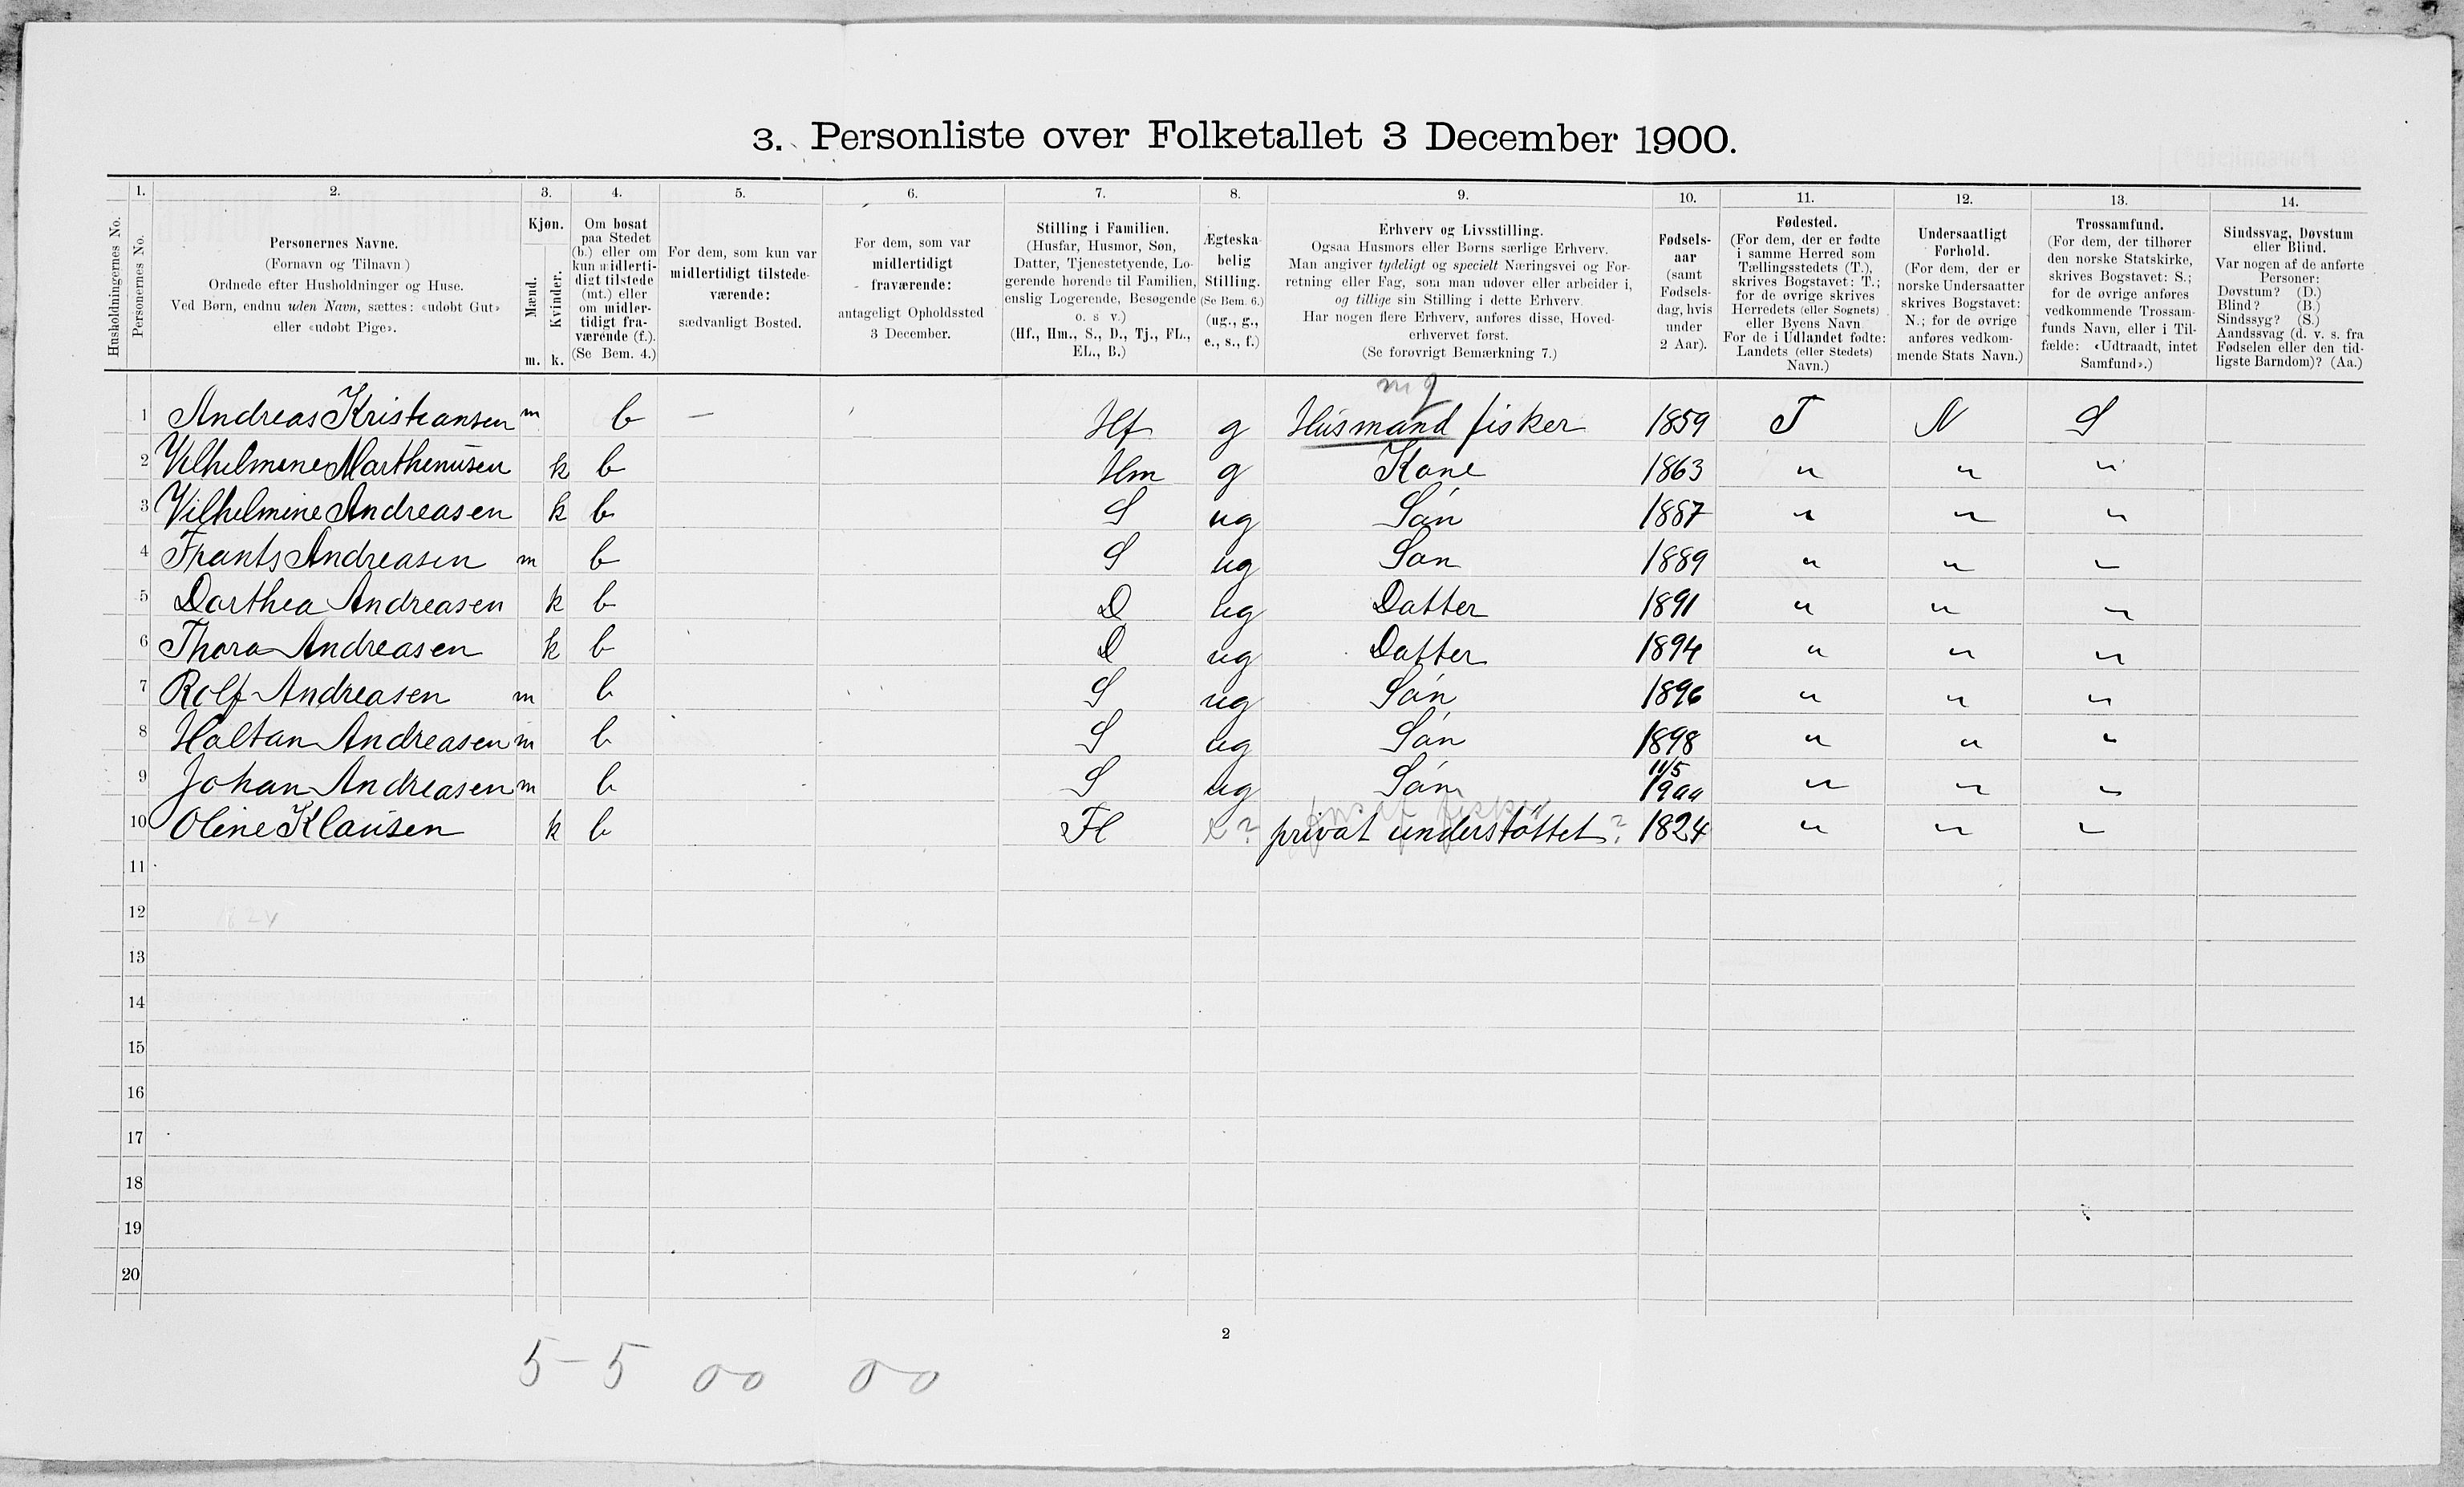 3. Personliste over Folketallet 3 December 1900.
1. 2. 3. 4. 5. 6. 7. 8. 9. 10. 11. 12. 13. 14.
Husholdningernes No.
Personernes No.
Personernes Navne.
(Fornavn og Tilnavn.)
Ordnede efter Husholdninger og Huse.
Ved Børn, endnu uden Navn, sættes: «udøbt Gut»
eller «udøbt Pige».
Kjøn.
Mænd.
Kvinder.
m. k.
Om bosat
paa Stedet
(b.) eller om
kun midlerti-
digt tilstede
(mt.) eller
om midler-
tidigt fra-
værende (f.).
(Se Bem. 4.)
For dem, som kun var
midlertidigt tilstede-
værende:
sædvanligt Bosted.
For dem, som var
midlertidigt
fraværende:
antageligt Opholdssted
3 December.
Stilling i Familien.
(Husfar, Husmor, Søn,
Datter, Tjenestetyende, Lo-
gerende hørende til Familien,
enslig Logerende, Besøgende
o. s v.)
(Hf., Hm., S., D., Tj., FL.,
EL., B.)
Ægteska-
belig
Stilling.
(Se Bem. 6.)
(ug., g.,
e., s., f.)
Erhverv og Livsstilling.
Ogsaa Husmors eller Børns særlige Erhverv.
Man angiver tydeligt og specielt Næringsvei og For-
retning eller Fag, som man udøver eller arbeider i,
og tillige sin Stilling i dette Erhverv.
Har nogen flere Erhverv, anføres disse, Hoved-
erhvervet først.
(Se forøvrigt Bemærkning 7.)
Fødsels-
aar
(samt
Fødsels-
dag, hvis
under
2 Aar).
Fødested.
(For dem, der er fødte
i samme Herred som
Tællingsstedets (T.),
skrives Bogstavet: T.;
for de øvrige skrives
Herredets (eller Sognets)
eller Byens Navn
For de i Udlandet fødte:
Landets (eller Stedets)
Navn.)
Undersaatligt
Forhold.
(For dem, der er
norske Undersaatter
skrives Bogstavet:
N.; for de øvrige
anføres vedkom-
mende Stats Navn.)
Trossamfund.
(For dem, der tilhører
den norske Statskirke,
skrives Bogstavet: S.;
for de øvrige anføres
vedkommende Trossam-
funds Navn, eller i Til-
fælde: «Udtraadt, intet
Samfund».)
Sindssvag, Døvstum
eller Blind.
Var nogen af de anførte
Personer:
Døvstum? (D.)
Blind? (B.)
Sindssyg? (S.)
Aandssvag (d. v. s. fra
Fødselen eller den tid-
ligste Barndom)? (Aa.)
1 Andreas Kristiansen m b — Hf g Husmand fisker 1859 T N S
2 Vilhelmine Marthenusen k b Hm g Kone 1863 " " "
3 Vilhelmine Andreasen k b S ug Søn 1887 " " "
4 Frants Andreasen m b S ug Søn 1889 " " "
5 Dorthea Andreasen k b D ug Datter 1891 " " "
6 Thora Andreasen k b D ug Datter 1894 " " "
7 Rolf Andreasen m b S ug Søn 1896 " " "
8 Haltan Andreasen m b S ug Søn 1898 " " "
9 Johan Andreasen m b S ug Søn 11/5 1900 " " "
10 Oline Klausen k b Fl ? privat understøttet ? 1824 " " "
11
12 1824
13
14
15
16
17
18
19
20
2
5 - 5 00 00